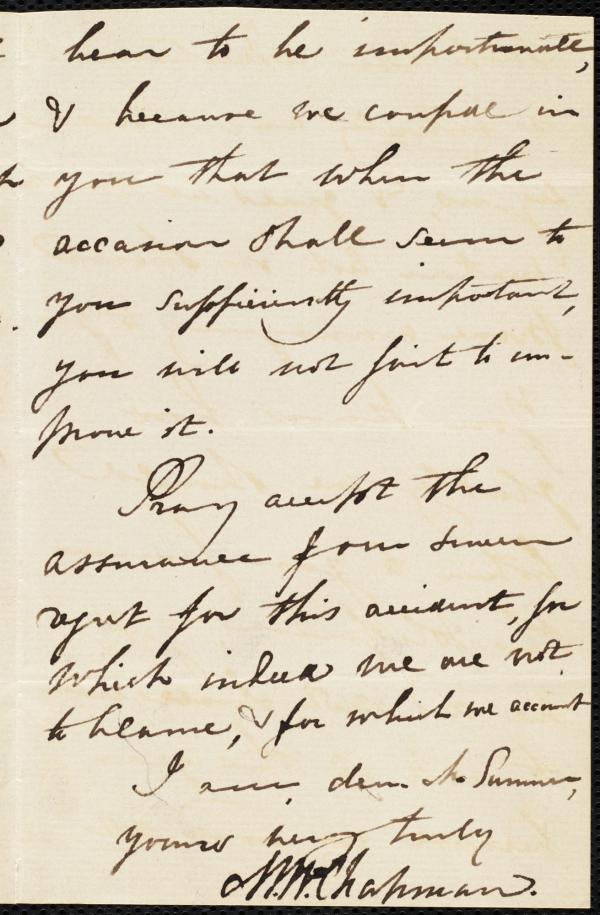 bear to be importunate,
& because we confide in
you that when the
occasion shall seem to
you sufficiently important,
you will not fail to im-
prove it.
Pray accept the
assurance of our sincere
regret for this accident, for
which indeed we are not
to blame, & for which we account
I am, dear Mr Sumner,
yours very truly
M. W. Chapman.